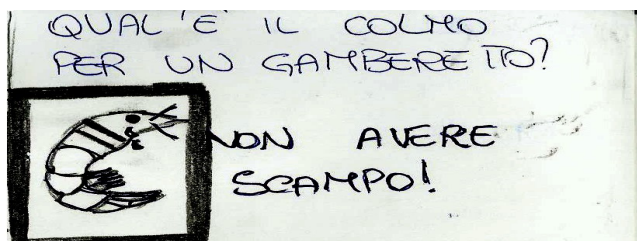 QUAL'E' IL COLMO
PER UN GAMBERETTO?
NON AVERE
SCAMPO!